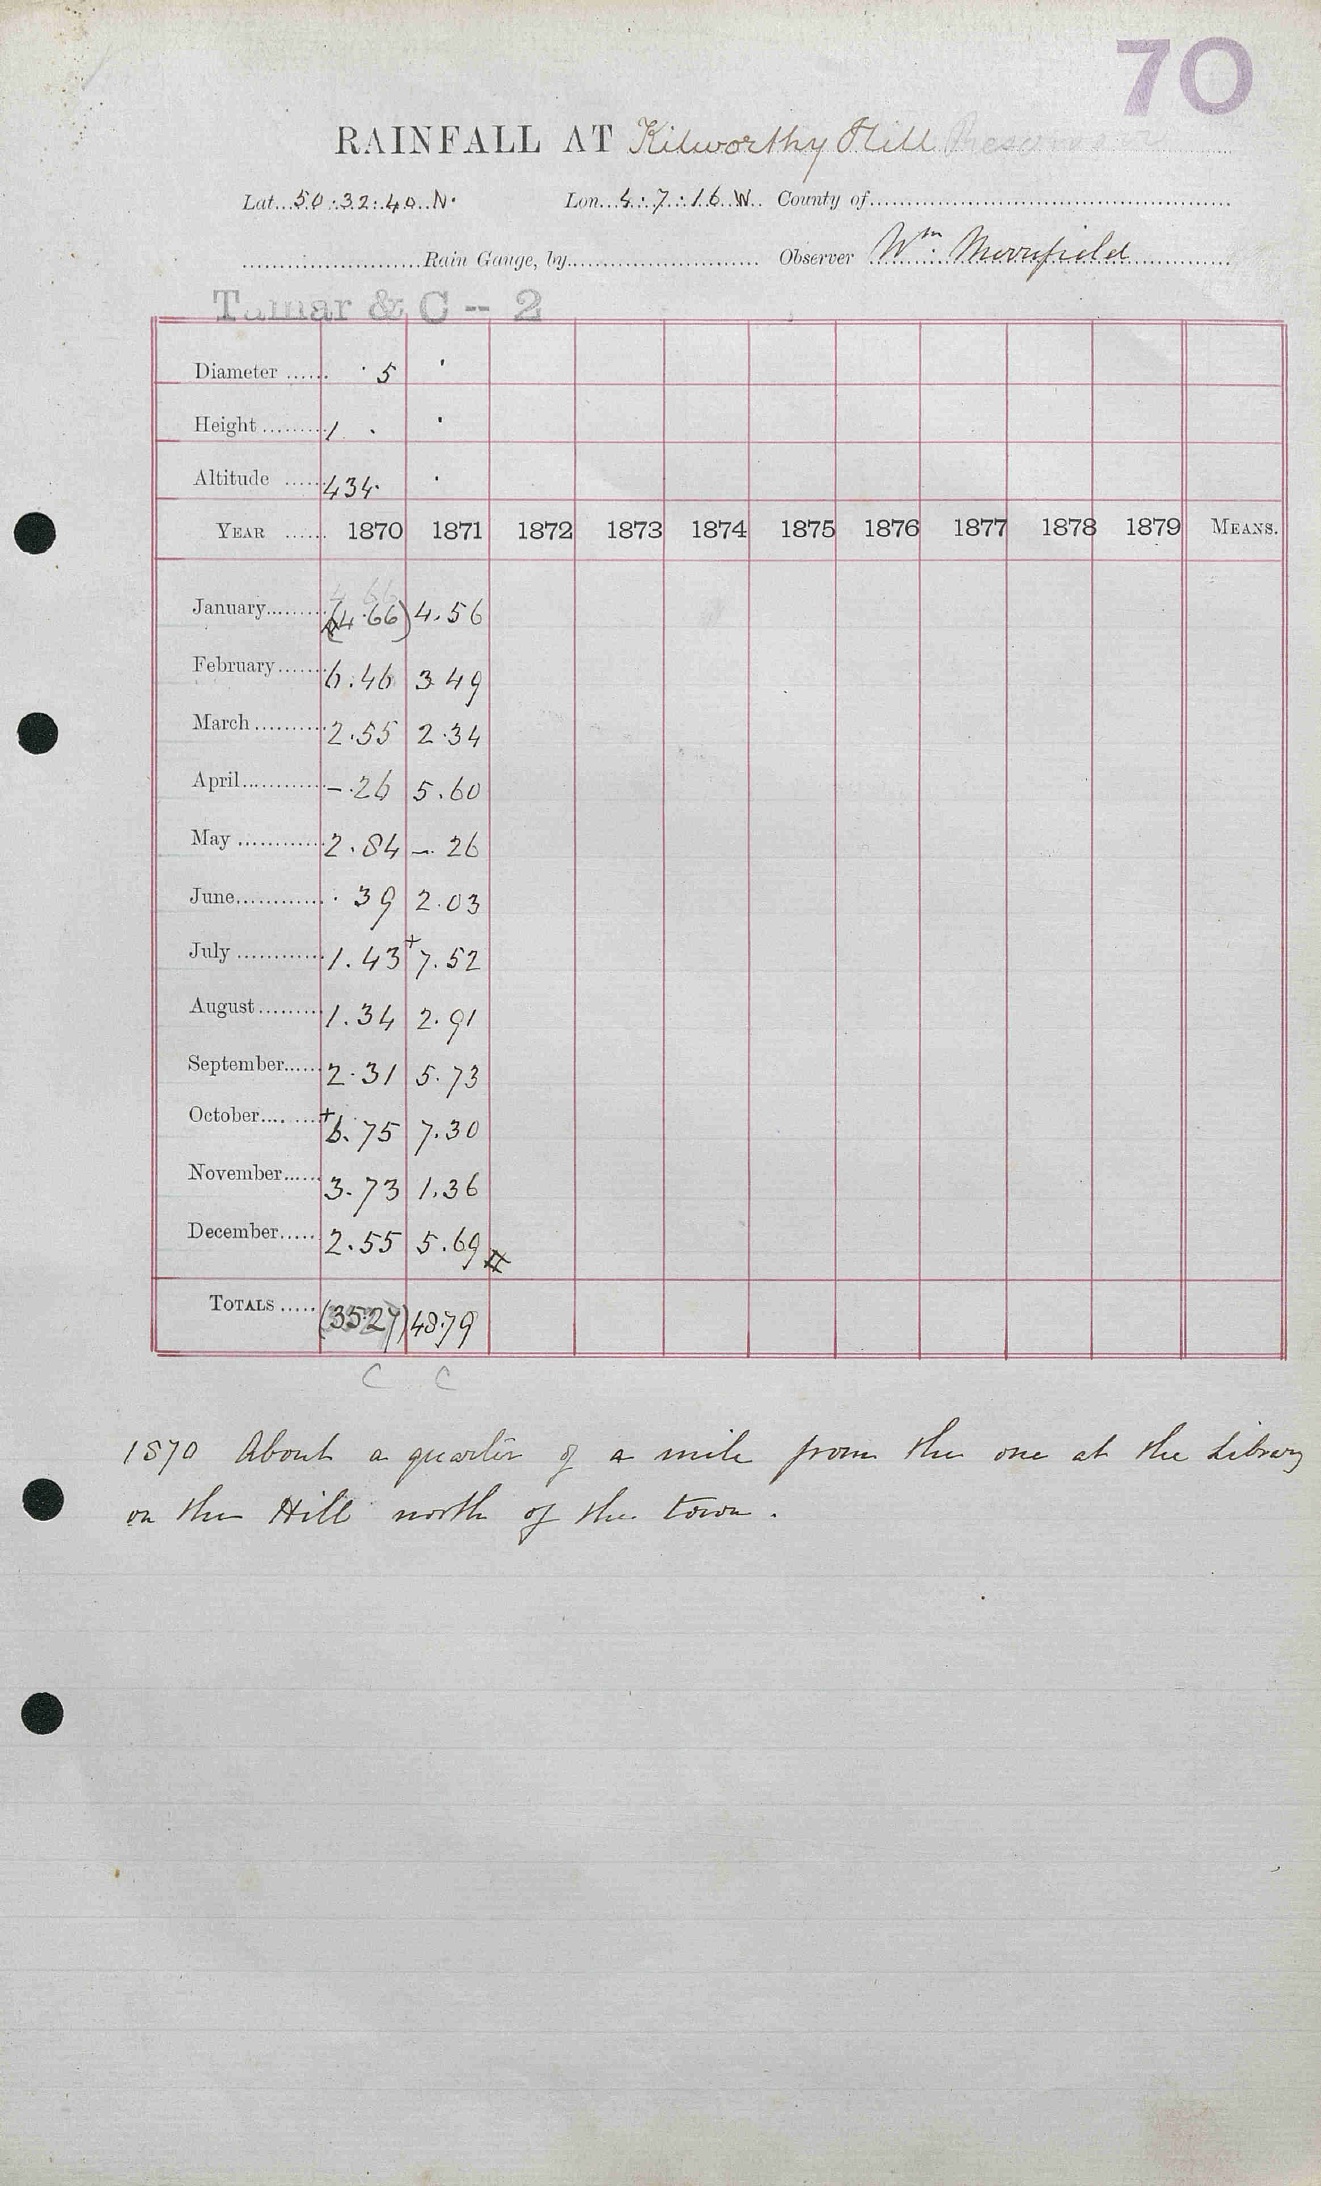 70
RAINFALL AT Kilworthy Hill Reservoir
Lat. 50.32.40 N. Lon. 4.7.16 W. County of
Rain Gauge, by Observer Wm. Merrifield
Tamar & C -- 2
Diameter ...... . 5 .
Height ......... 1 . .
Altitude ...... 434. .
YEAR ...... 1870 1871 1872 1873 1874 1875 1876 1877 1878 1879 MEANS.
4.66
January......... (4.66) 4.56
February....... 6.46 3 49
March .......... 2.55 2.34
April............ - .26 5.60
May ............ 2.84 -. 26
June............ . 39 2.03
July ............ 1.43 + 7.52
August ......... 1.34 2.91
September...... 2.31 5.73
October......... + 6.75 7.30
November...... 3.73 1.36
December...... 2.55 5.69 #
TOTALS ..... (35.27) 48.79
C C
1870 About a quarter of a mile from the one at the Library
on the Hill north of the town.